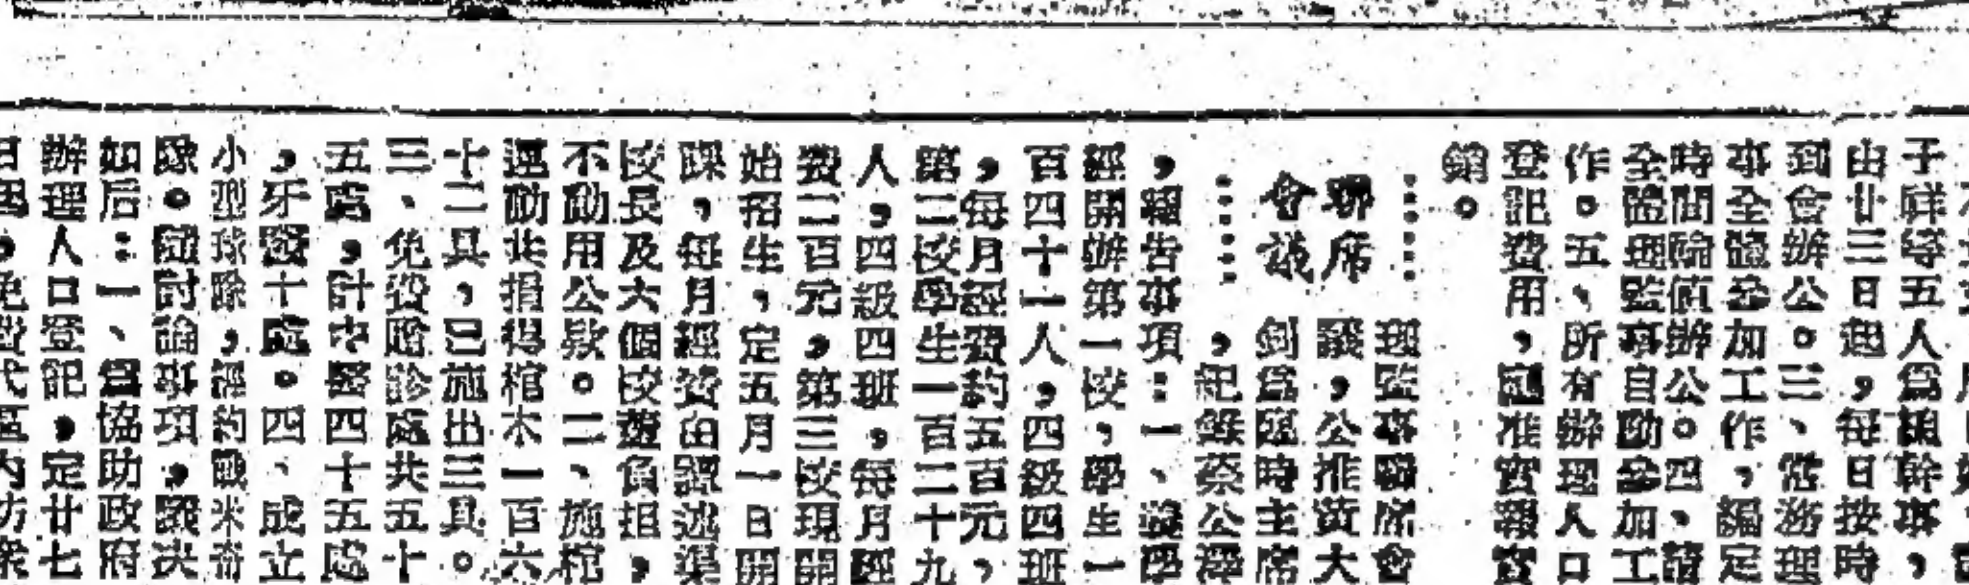 子咩等五人爲總幹事，
由廿三日起，每日按時
到會辦公。三、常務理
事全體參加工作，編定
時間輪值辦公。四、請
全體理監事自動參加工
作。五、所有辦理人口
登記費用，准實報實
銷。
聯席
會議
理監事聯席會
議，公推黃大
釗爲臨時主席
，紀錄蔡公澤
，報告事項：一、義學
經開辦第一校，學生一
百四十一人，四級四班
，每月經費約五百元，
第二校學生一百二十九
人，四級四班，每月經
費二百元，第三校現開
始招生，定五月一日開
課，每月經費由譚述渠
校長及六個校董負担，
不動用公欵。二、施棺
運動共捐得棺木一百六
十二具，已施出三具。
三、免費贈診處共五十
五處，計中醫四十五處
，牙醫十處。四、成立
小型球隊，經約戰米奇
隊。隨討論事項，議决
如后：一、爲協助政府
辦理人口登記，定廿七
日，免費代區內坊衆